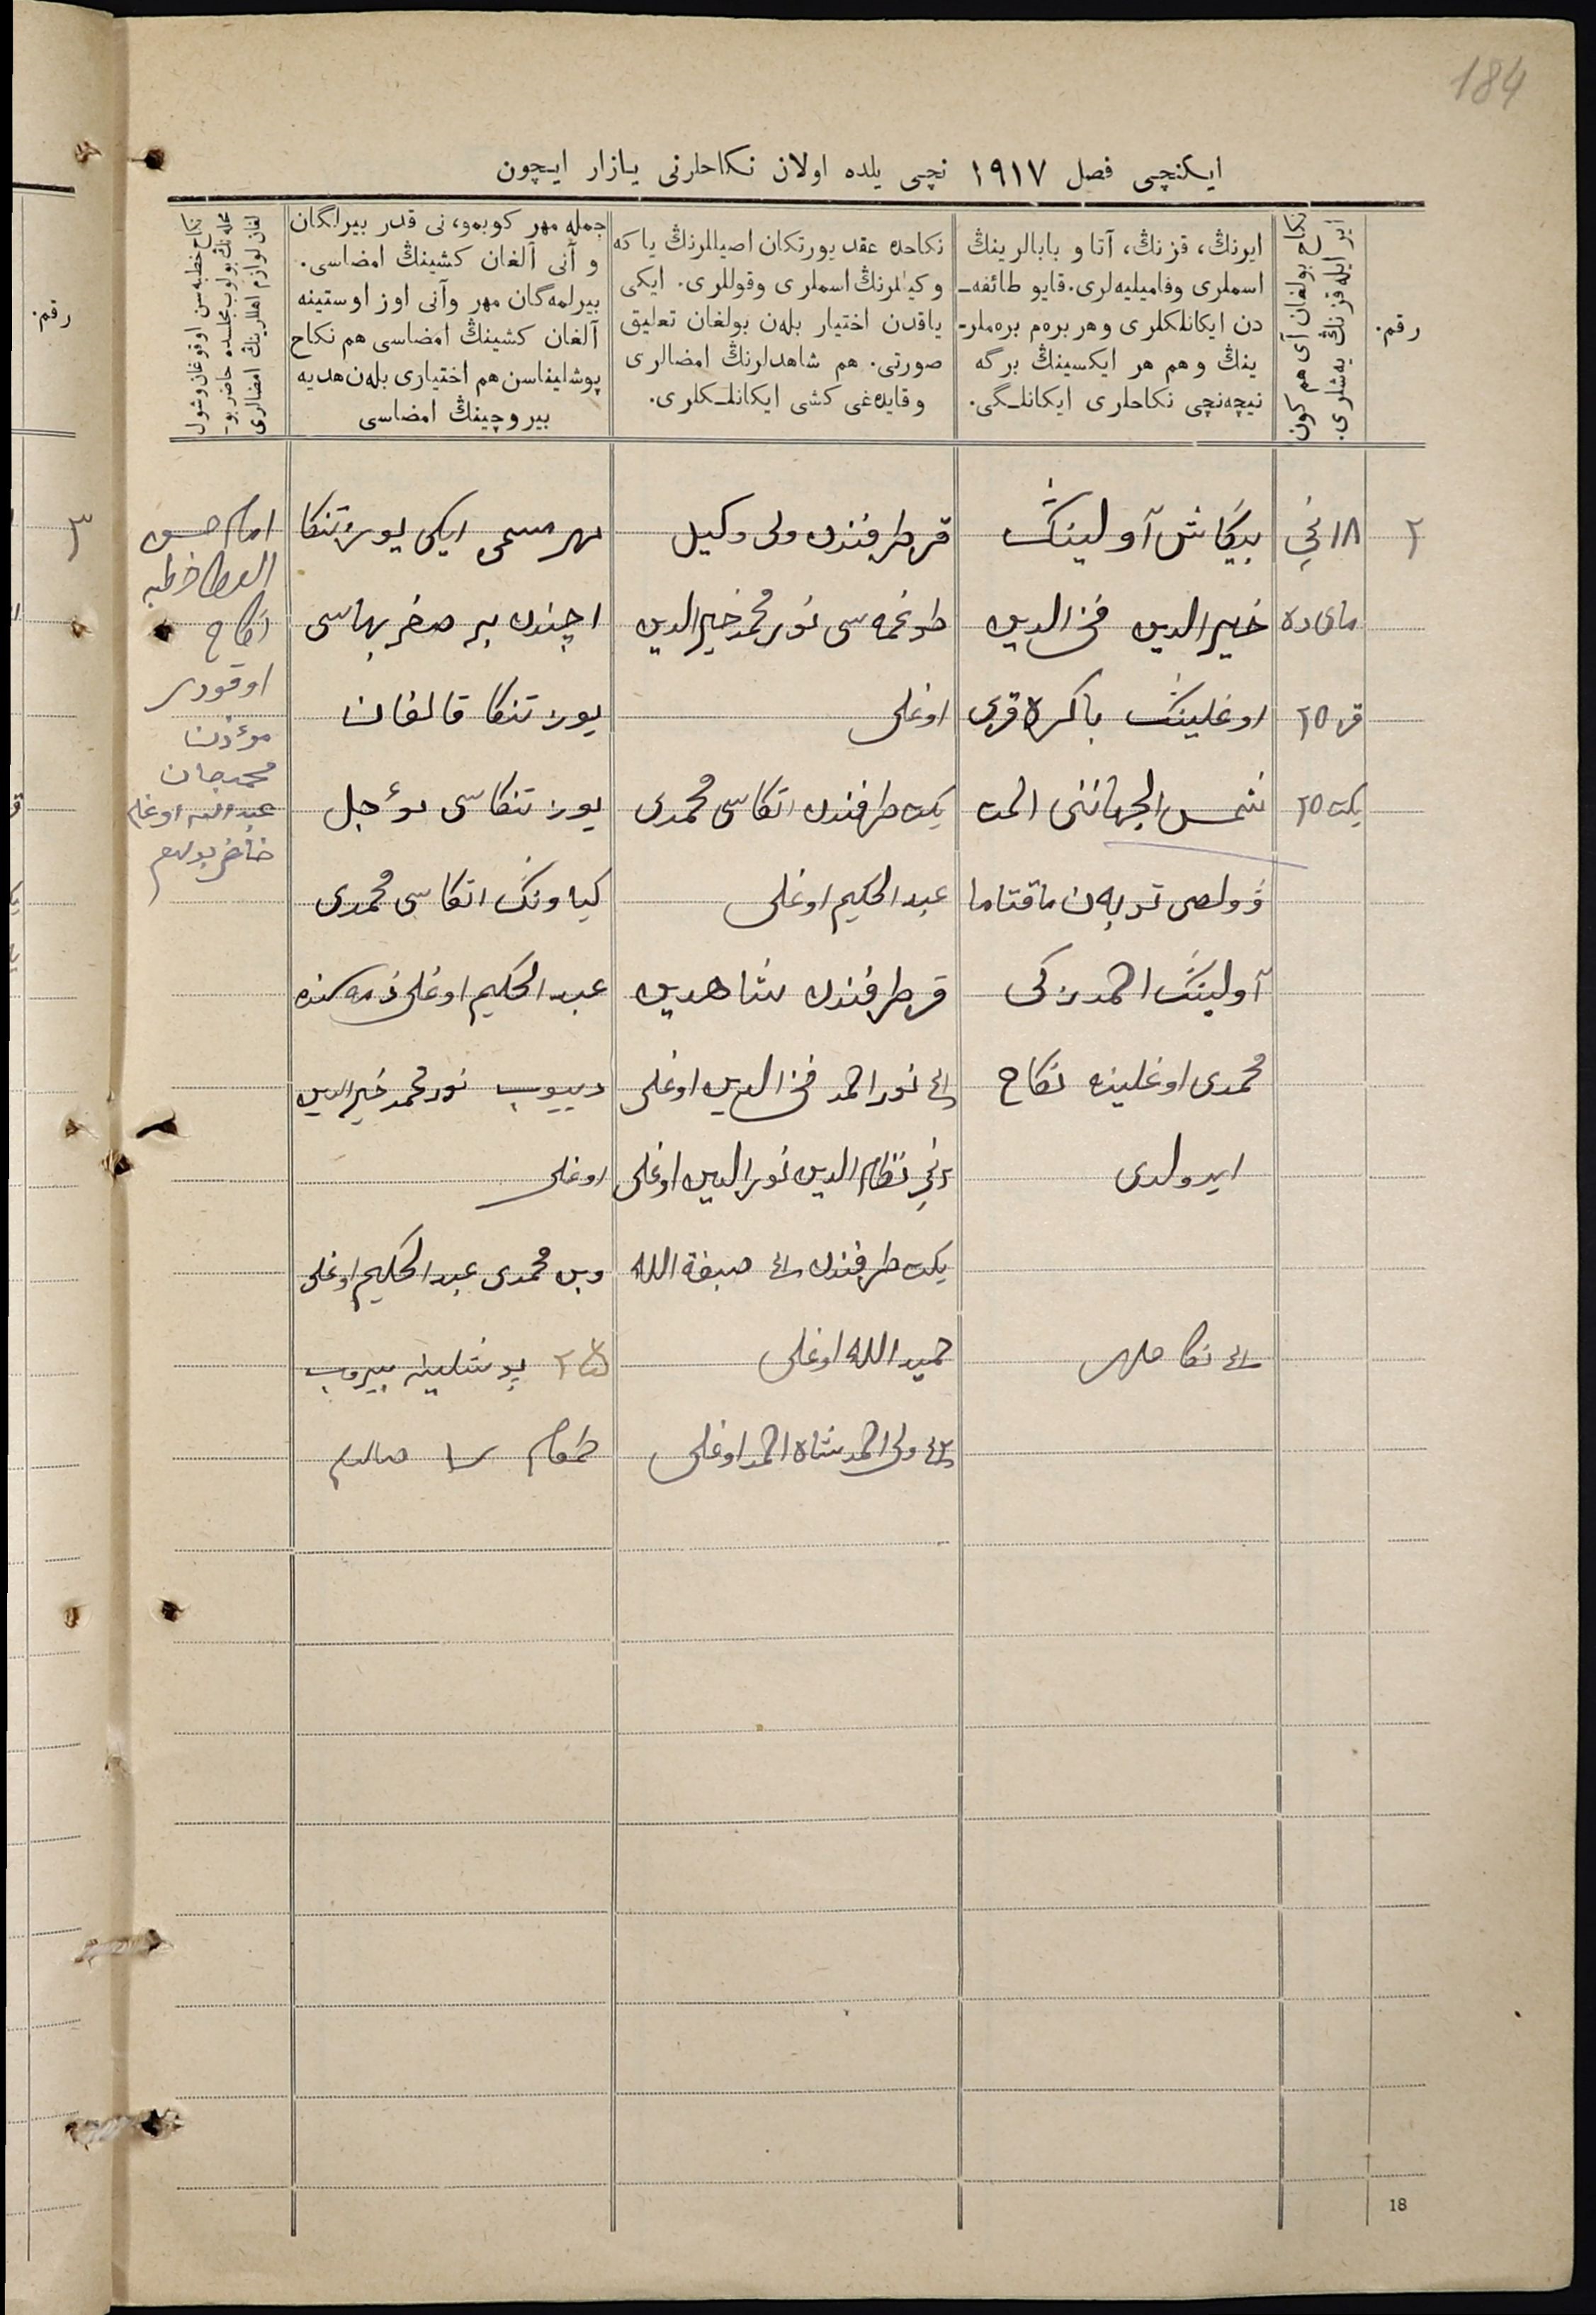 184
ایكنچی فصل ١٩١٧ نچی یلده اولان نكاحلرنی یازار ایچون
رقم.
نكاح بولغان آی هم كون
ایر ایله قزنڭ یه‌شلری.
ایرنڭ، قزنڭ، آتا و بابالرینڭ
اسملری وفامیلیه‌لری. قایو طائفه‌ـ
دن ایكانلكلری وهر بره‌م بره‌ملرـ
ینڭ وهم هر ایكسینڭ برگه
نیچه‌نچی نكاحلری ایكانلـگی.
نكاحده عقد یورتكان اصیللرنڭ یا كه
وكیللرنڭ اسملری وقوللری. ایكی
یاقدن اختیار بله‌ن بولغان تعلیق
صورتی. هم شاهدلرنڭ امضالری
وقایده‌غی كشی ایكانلـكلری.
جمله مهر كوبمو، نی قدر بیرلگان
و آنی آلغان كشینڭ امضاسی.
بیرلمه‌گان مهر وآنی اوز اوستینه
آلغان كشینڭ امضاسی هم نكاح
پوشلیناسن هم اختیاری بله‌ن هدیه
بیروچینڭ امضاسی
نكاح خطبه‌سن اوقوغان وشول
محله‌نڭ بولوب مجلسده حاضر بوـ
لغان لوازم اهللرینڭ امضالری
٢
١٨ نچی
مای ده
قز ٢٥
یكت ٢٥
بیكاش آولینڭ
خیرالدین فخرالدین
اوغلینڭ باكره قزی
شمس الجهاننی المت
ۋولصی توبه‌ن ماقتاما
آولینڭ احمدزكی
محمدی اوغلینه نكاح
ایدولدی
قز طرفندن ولی وكیل
طوغمه سی نورمحمد خیرالدین
اوغلی
یكت طرفندن اتكاسی محمدی
عبدالحكیم اوغلی
قز طرفندن شاهدین
نوراحمد فخرالدین اوغلی
٢نچی نظام الدین نورالدین اوغلی
یكت طرفندن صبغة الله
حمیدالله اوغلی
ولی احمد شاه احمد اوغلی
مهر مسمی ایكی یوز تنكا
اچندن بر صغر بهاسی
یوز تنكا قالغان
یوز تنكاسی مؤجل
كیاونڭ اتكاسی محمدی
عبدالحكیم اوغلی ذمه سنده
دییوب نورمحمد خیرالدین
اوغلی
وبن محمدی عبدالحكیم اوغلی
پوشلینه بیروب
امام حسن
العطا خطبه
نكاح
اوقودی
موءذن
محمدجان
عبدالله اوغلی
حاضر بولدم
٣
رقم.
18